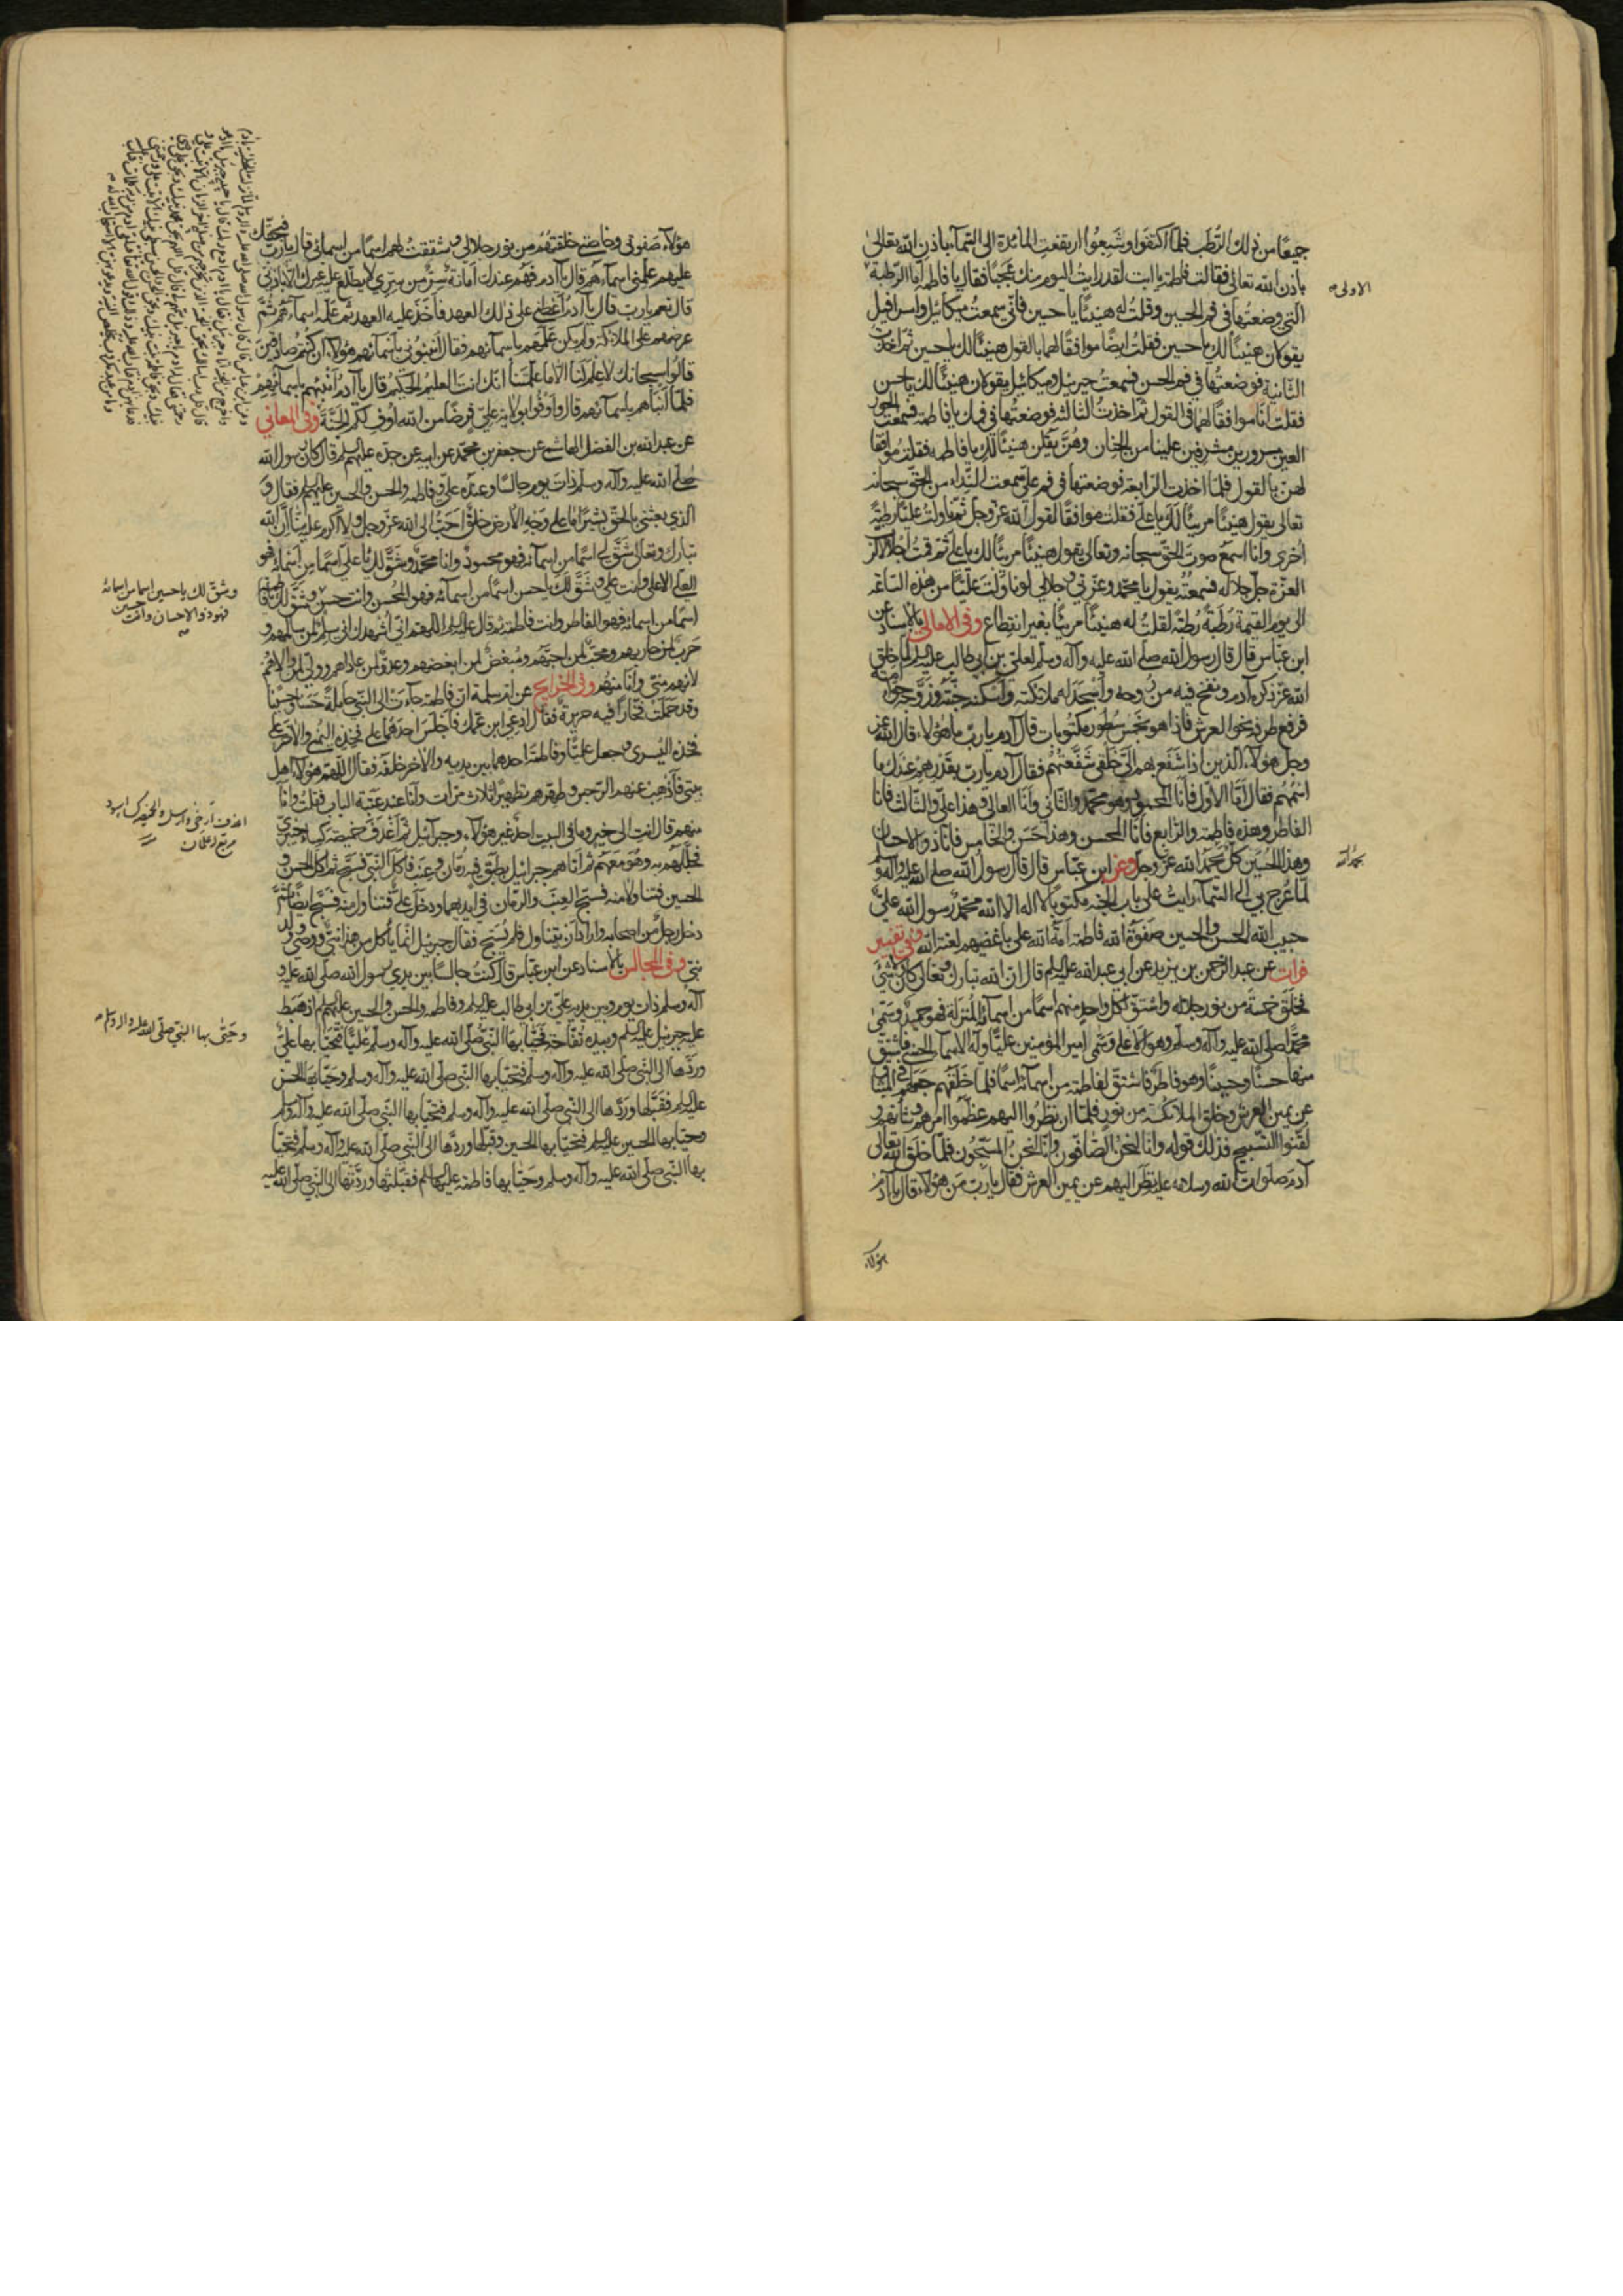 جميعًا من ذلك الرّطب فلمّا اكتفوا وشبعوا ارتفعت المائدة الى السّمآء باذن الله تعالى
باذن الله تعالى فقالت فاطمة يا ابت لقد رايت اليوم منك عجبًا فقال يا فاطمة امّا الرّطبة
الاولى
التي وضعتها في فم الحسين وقلت له هنيئًا يا حسين فانّي سمعت ميكائيل واسرافيل
يقولان هنيئًا لك يا حسين فقلت ايضًا موافقًا لهما بالقول هنيئًا لك يا حسين ثم اخذت
الثانية فوضعتها في فم الحسن فسمعت جبرئيل وميكائيل يقولان هنيئًا لك يا حسن
فقلت انا موافقًا لهما في القول ثم اخذت الثالثة فوضعتها في فمك يا فاطمة فسمعت الحور
العين مسرورين مشرفين علينا من الجنان وهنّ يقلن هنيئًا لك يا فاطمة فقلت موافقًا
لهنّ بالقول فلمّا اخذت الرّابعة فوضعتها في فم عليّ سمعت النّداء من الحقّ سبحانه
تعالى يقول هنيئًا مريئًا لك يا علي فقلت موافقًا لقول الله عزّ وجلّ ثم ناولت عليًّا رطبة
اخرى وانا اسمع صوت الحقّ سبحانه وتعالى يقول هنيئًا مريئًا لك يا علي ثم قمت اجلالًا لربّ
العزّة جلّ جلاله فسمعته يقول يا محمّد وعزّتي وجلالي لو ناولت عليًّا من هذه السّاعة
الى يوم القيمة رطبة رطبة لقلت له هنيئًا مريئًا بغير انقطاع وفي الامالي بالاسناد عن
ابن عبّاس قال قال رسول الله صلى الله عليه وآله وسلم لعلي بن ابي طالب عليه السلم لمّا خلق
الله عزّ ذكره آدم ونفخ فيه من روحه واسجد له ملائكته واسكنه جنّته وزوّجه حوّا امته
فرفع طرفه نحو العرش فاذا هو بخمس سطور مكتوبات قال آدم يا ربّ ما هؤلاء قال الله عز
وجل هؤلاء الّذين اذا شفع بهم اليّ خلقي شفّعتهم فقال آدم يا ربّ بقدرهم عندك ما
اسمهم فقال امّا الاوّل فانا المحمود وهو محمّد والثاني وانا العالي وهذا علي والثالث فانا
الفاطر وهذه فاطمة والرّابع فانا المحسن وهذا حسن والخامس فانا ذو الاحسان
وهذا الحسين كلّ يحمد الله عزّ وجل وعن ابن عبّاس قال قال رسول الله صلى الله عليه وآله و
لمّا عرج بي الى السّمآء رايت على باب الجنّة مكتوبًا لا اله الا الله محمّد رسول الله عليّ
حبيب الله الحسن والحسين صفوة الله فاطمة امة الله على باغضيهم لعنة الله وفي تفسير
فرات عن عبد الرّحمن بن يزيد عن ابي عبد الله عليه السلم قال ان الله تبارك وتعالى كان ولا شيء
فخلق خمسة من نور جلاله واشتق لكل واحد منهم اسمًا من اسمائه المنزلة فهو حميد وسمّى
محمّدًا صلى الله عليه وآله وسلم وهو الاعلى وسمّى امير المؤمنين عليًّا وله الاسمآء الحسنى فاشتق
منها حسنًا وحسينًا وهو فاطر فاشتق لفاطمة من اسمائه اسمًا فلما خلقهم جعلهم في الميثاق
عن يمين العرش وخلق الملائكة من نور فلمّا ان نظروا اليهم عظّموا امرهم وشأنهم و
لقّنوا التّسبيح فذلك قوله وانّا لنحن الصّافّون وانّا لنحن المسبّحون فلمّا خلق الله تعالى
آدم صلوات الله وسلامه عليه نظر اليهم عن يمين العرش فقال يا ربّ من هؤلاء قال يا آدم
هؤلاء
هؤلاء صفوتي وخاصّتي خلقتهم من نور جلالي وشققت لهم اسمًا من اسمائي قال يا ربّ فبحقّك
عليهم علّمني اسماءهم قال يا آدم فهم عندك امانة سرّ من سرّي لا يطّلع عليه غيرك الّا باذني
قال نعم يا ربّ قال يا آدم اعطني على ذلك العهد فاخذ عليه العهد ثم علّمه اسمآءهم ثمّ
عرضهم على الملائكة ولم يكن علّمهم باسمآئهم فقال انبئوني باسمآئهم هؤلاء ان كنتم صادقين
قالوا سبحانك لا علم لنا الّا ما علّمتنا انّك انت العليم الحكيم قال يا آدم انبئهم باسمآئهم
فلمّا انبأهم باسمآئهم قال واوفوا بولاية علي فرضًا من الله اوف لكم الجنّة وفي المعاني
عن عبد الله بن الفضل الهاشمي عن جعفر بن محمّد عن ابيه عن جدّه عليهم السلم قال كان رسول الله
صلى الله عليه وآله وسلم ذات يوم جالسًا وعنده علي وفاطمة والحسن والحسين عليهم السلم فقال و
الّذي بعثني بالحقّ بشيرًا ما على وجه الارض خلق احبّ الى الله عزّ وجل ولا اكرم عليه منّا انّ الله
تبارك وتعالى شقّ لي اسمًا من اسمائه فهو محمود وانا محمّد وشقّ لك يا علي اسمًا من اسمائه فهو
العلي الاعلى وانت علي وشقّ لك يا حسن اسمًا من اسمائه فهو المحسن وانت حسن وشقّ لك يا فاطمة
وشقّ لك يا حسين اسما من اسمائه
فهو ذو الاحسان وانت حسين
اسمًا من اسمائه فهو الفاطر وانت فاطمة ثم قال عليه السلم اللهم انّي اشهدك اني سلم لمن سالمهم و
حرب لمن حاربهم ومحبّ لمن احبّهم ومبغض لمن ابغضهم وعدوّ لمن عاداهم ووليّ لمن والاهم
لانهم منّي وانا منهم وفي الخرايج عن ام سلمة ان فاطمة جاءت الى النّبي حاملة حسنًا وحسينًا
وقد حملت فخّارًا فيه حريرة فقال ادعي ابن عمّك فاجلس احدهما على فخذه اليمنى والآخر على
فخذه اليسرى وجعل عليًّا وفاطمة احدهما بين يديه والآخر خلفه فقال اللّهم هؤلاء اهل
بيتي فاذهب عنهم الرّجس وطهّرهم تطهيرًا ثلاث مرّات وانا عند عتبة الباب فقلت وانا
منهم قال انت الى خير وما في البيت احد غير هؤلاء وجبرآئيل ثم اغدف خميصة كساء خيبري
فجلّلهم به وهو معهم ثم اتاهم جبرائيل بطبق فيه رمّان وعنب فاكل النّبي فسبّح ثم اكل الحسن و
الحسين فتناولا منه فسبّح العنب والرّمان في ايديهما ودخل علي فتناول منه فسبّح ايضًا ثمّ
دخل رجل من اصحابه واراد ان يتناول فلم يسبّح فقال جبرئيل انّما ياكل من هذا نبيّ ووصيّ وولد
نبيّ وفي المجالس بالاسناد عن ابن عبّاس قال كنت جالسًا بين يدي رسول الله صلى الله عليه
آله وسلم ذات يوم وبين يديه علي بن ابي طالب عليه السلم وفاطمة والحسن والحسين عليهم السلم اذ هبط
عليه جبرئيل عليه السلم وبيده تفّاحة فحيّا بها النّبي صلى الله عليه وآله وسلم عليًّا فتحيّا بها علي
وحيّى بها النبي صلى الله عليه واله وسلم
وردّها الى النّبي صلى الله عليه وآله وسلم فتحيّا بها النّبي صلى الله عليه وآله وسلم وحيّا بها الحسن
عليه السلم فقبّلها وردّها الى النّبي صلى الله عليه وآله وسلم فتحيّا بها النّبي صلى الله عليه وآله وسلم
وحيّا بها الحسين عليه السلم فتحيّا بها الحسين وقبّلها وردّها الى النّبي صلى الله عليه وآله وسلم فتحيّا
بها النّبي صلى الله عليه وآله وسلم وحيّا بها فاطمة عليها السلم فقبّلتها وردّتها الى النّبي صلى الله عليه